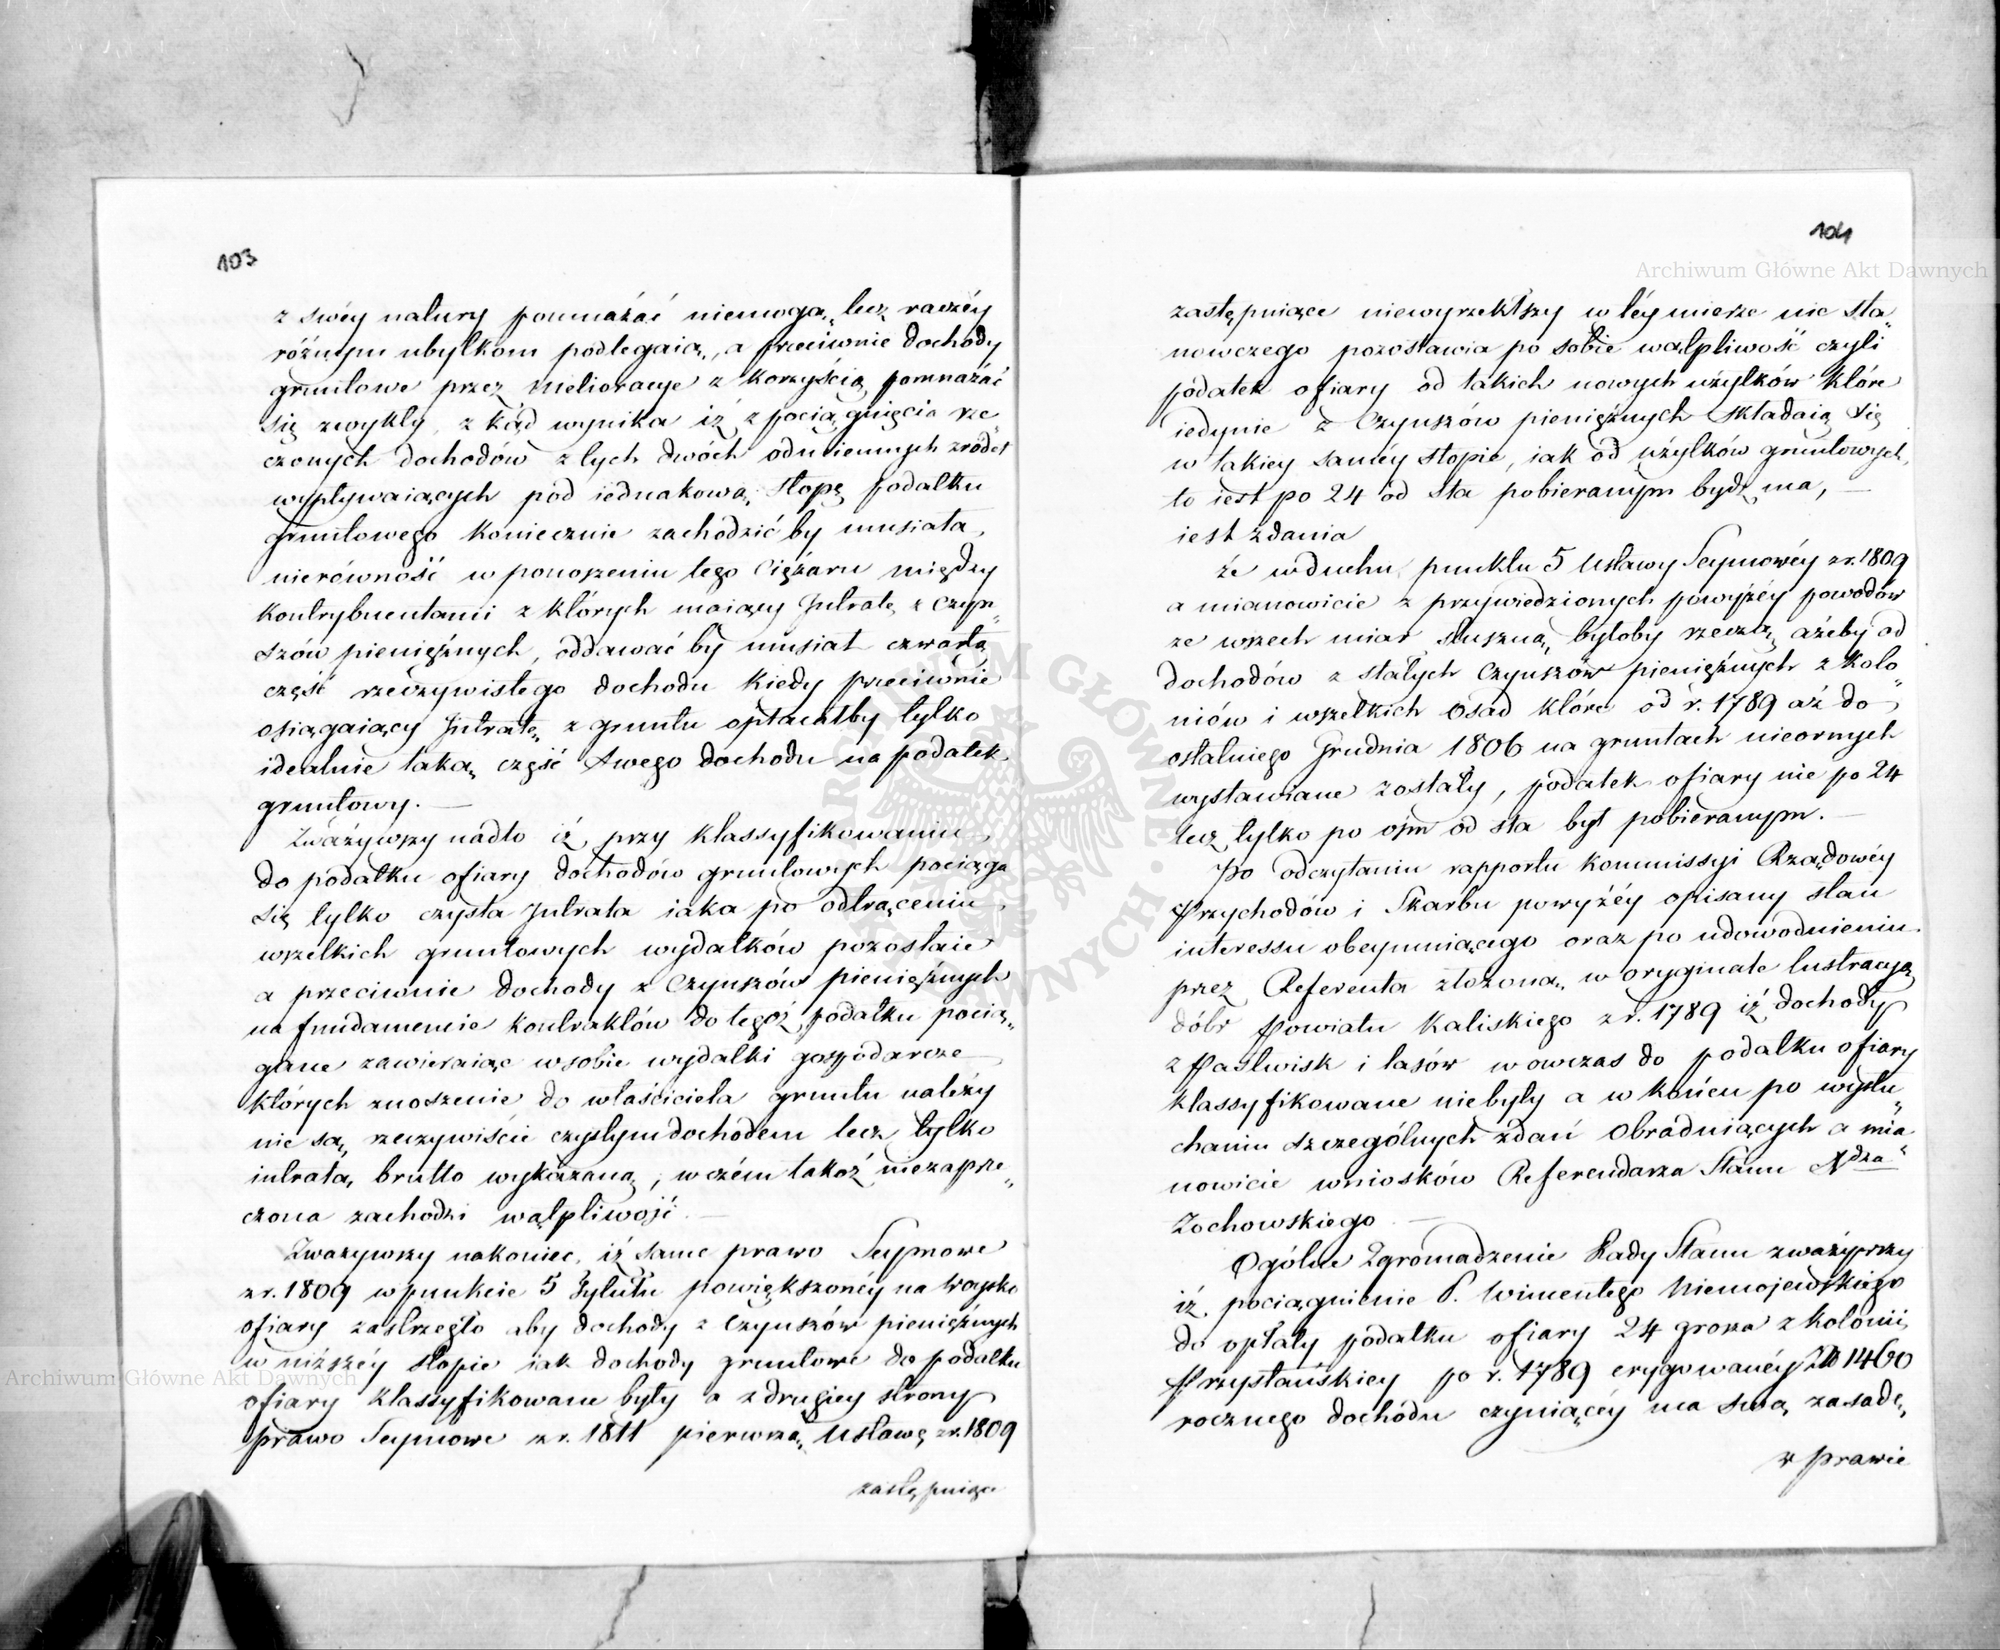 103
z swéy natury pomnażać niemogą, lecz raczéy
różnym ubytkom podlegaią, a przeciwnie dochody
gruntowe przez Melioracye z korzyścią pomnażać
się zwykły, z kąd wynika iż z pociągnięcia rze„
czonych dochodów z tych dwóch odmiennych źródeł
wypływaiących pod iednakową stopę podatku
gruntowego koniecznie zachodzić by musiała
nierówność w ponoszeniu tego Ciężaru między
kontrybuentami z których maiący Intratę z Czyn„
szów pieniężnych, oddawać by musiał czwartą
część rzeczywistego dochodu kiedy przeciwnie
osiągaiący Intratę z gruntu opłacałby tylko
idealnie taką część swego dochodu na podatek
gruntowy. —
Zważywszy nadto iż przy klassyfikowaniu
do podatku ofiary dochodów gruntowych pociąga
się tylko czysta Intrata iaka po odtrąceniu
wszelkich gruntowych wydatków pozostaie
a przeciwnie dochody z Czynszów pieniężnych
na fundamencie kontraktów do tegoż podatku pocią„
gane zawieraiąc w sobie wydatki gospodarcze
których znoszenie do właściciela gruntu należy
nie są rzeczywiście czystym dochodem lecz tylko
intratą brutto wykazaną, w czém takoż niezaprze„
czona zachodzi wątpliwość —
Zważywszy nakoniec, iż same prawo Seymowe
z r. 1809 w punkcie 5 Tytułu powiększonéy na Woysko
ofiary zastrzegło aby dochody z Czynszów pieniężnych
w niższéy stopie iak dochody gruntowe do podatku
ofiary klassyfikowane były a z drugiey strony
prawo Seymowe z r. 1811 pierwszą Ustawę z r. 1809
zastępuiące
104
zastępuiące niewyrzekłszy w téy mierze nic sta„
nowczego pozostawia po sobie wątpliwość czyli
podatek ofiary od takich nowych użytków które
iedynie z Czynszów pieniężnych składaią się
w takiey samey stopie, iak od użytków gruntowych,
to iest po 24 od sta pobieranym bydź ma, —
iest zdania
że w duchu punktu 5 Ustawy Seymowéy z r. 1809
a mianowicie z przywiedzionych powyżéy powodów
ze wszech miar słuszną byłoby rzeczą, ażeby od
dochodów z stałych Czynszów pieniężnych z kolo„
niów i wszelkich osad które od r. 1789 aż do
ostatniego Grudnia 1806 na gruntach nieornych
wystawiane zostały, podatek ofiary nie po 24
lecz tylko po ośm od sta był pobieranym. —
Po odczytaniu rapportu kommissyi Rządowéy
Przychodów i Skarbu powyżéy opisany stan
interessu obeymuiącego oraz po udowodnieniu
przez Referenta złożoną w oryginale lustracyą
dóbr Powiatu Kaliskiego z r. 1789 iż dochody
z Pastwisk i lasów w owczas do podatku ofiary
klassyfikowane niebyły a w końcu po wysłu„
chaniu szczególnych zdań Obraduiących a mia„
nowicie wniosków Referendarza Stanu Ndza
Zochowskiego —
Ogólne Zgromadzenie Rady Stanu zważywszy
iż. pociągnienie P. Wincentego Niemojewskiego
do opłaty podatku ofiary 24 grosza z kolonii
Przystańskiey po r. 1789 erygowanéy 1460
rocznego dochodu czyniącéy ma swą zasadę,
w prawie
Archiwum Główne Akt Dawnych
Archiwum Główne Akt Dawnych
ARCHIWUM GŁÓWNE AKT DAWNYCH